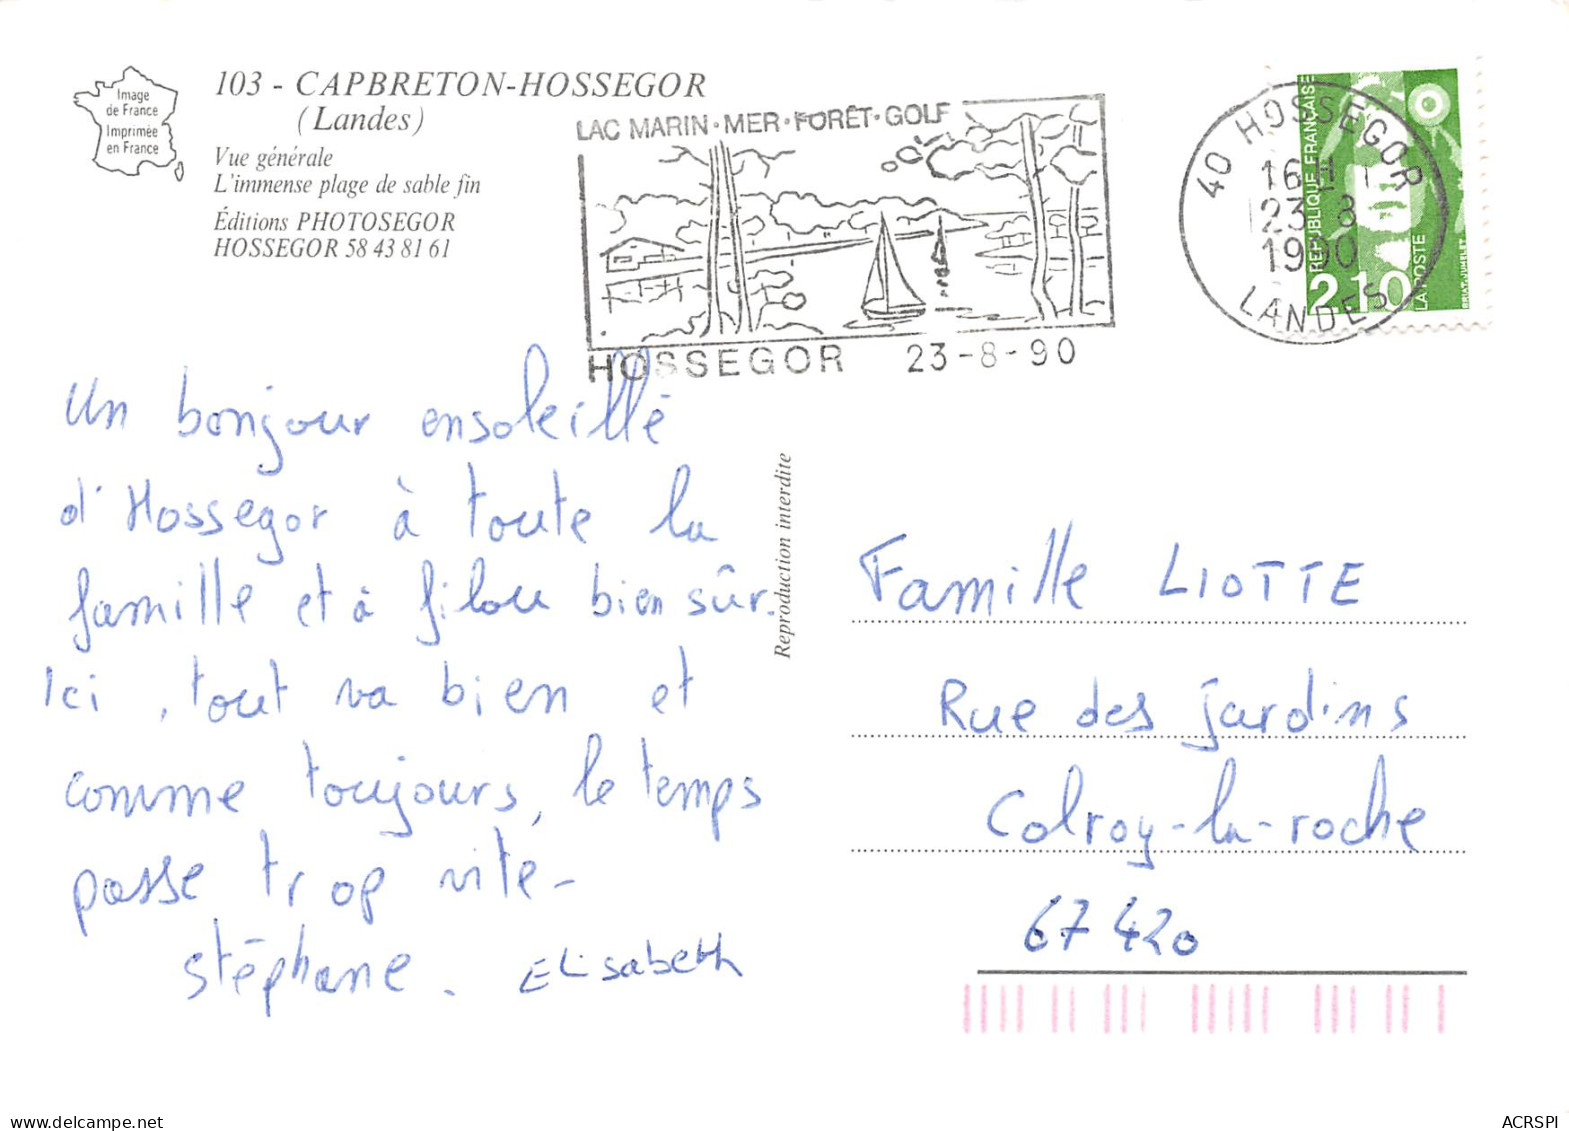 Image
de France
Imprimée
en France
103 - CAPBRETON-HOSSEGOR
(Landes)
Vue générale
L'immense plage de sable fin
Éditions PHOTOSEGOR
HOSSEGOR 58 43 81 61
LAC MARIN·MER·FORÊT·GOLF
HOSSEGOR 23-8-90
40 HOSSEGOR
16H
23-8
1990
LANDES
REPUBLIQUE FRANÇAISE
2,10
LA POSTE
BRIAT-JUMELET
Un bonjour ensoleillé
d'Hossegor à toute la
famille et à filou bien sûr.
Ici, tout va bien et
comme toujours, le temps
passe trop vite -
stéphane. Elisabeth
Reproduction interdite
Famille LIOTTE
Rue des jardins
Colroy-la-roche
67420
delcampe.net
ACRSPI